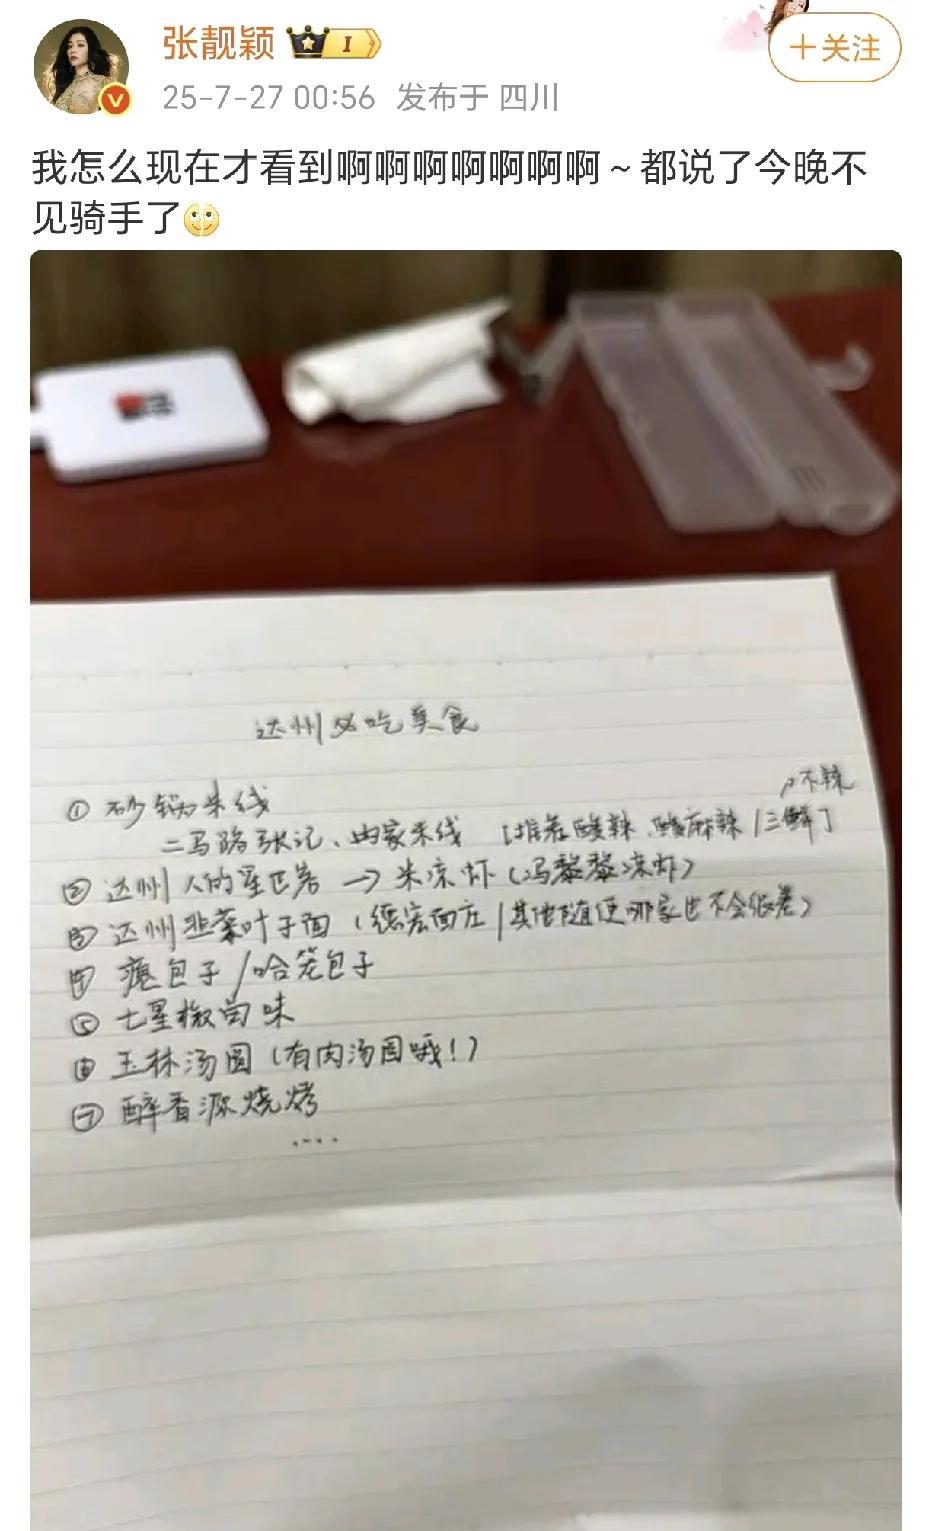 张靓颖 I
+关注
25-7-27 00:56 发布于 四川
我怎么现在才看到啊啊啊啊啊啊啊～都说了今晚不
见骑手了
达州必吃美食
① 砂锅米线
不辣
二马路张记、冉家米线 [推荐酸辣、酸麻辣/三鲜]
② 达州人的星巴克 → 米凉虾(冯黎黎凉虾)
③ 达州韭菜叶子面 (德宏面庄/其他随便哪家也不会很差)
④ 瘪包子/哈笼包子
⑤ 七星椒卤味
⑥ 玉林汤圆(有肉汤圆哦!)
⑦ 醉香源烧烤
....